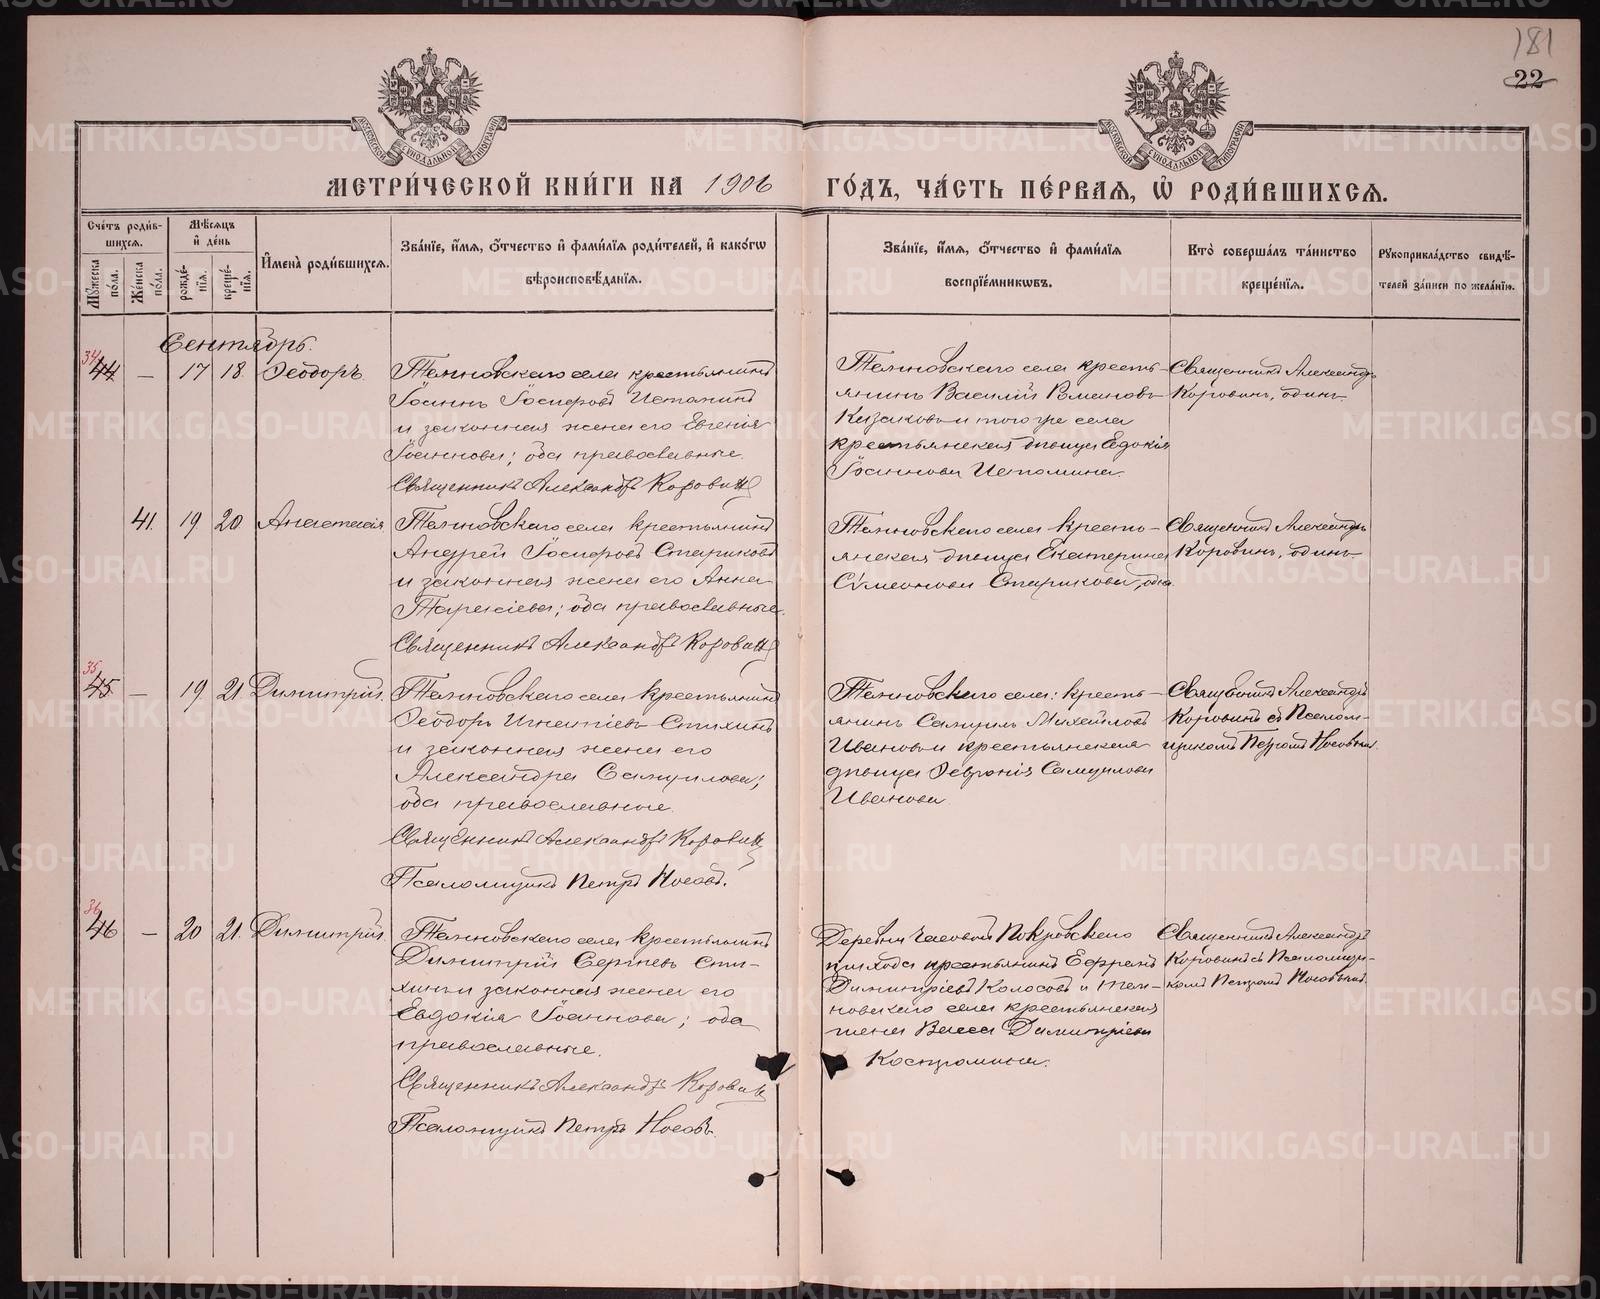 181
22
МЕТРИ́ЧЕСКОЙ КНИ́ГИ НА 1906 ГО́ДЪ, ЧА́СТЬ ПЕ́РВАЯ, Ѡ РОДИ́ВШИХСЯ.
Сче́тъ роди́в-
шихся.
Мꙋ́жеска по́ла.
Же́нска по́ла.
Мѣ́сяцъ
и҆ де́нь
рожде́-
нїя.
креще́-
нїя.
И҆мена̀ роди́вшихся.
Зва́нїе, и҆́мя, ѻ҆́тчество и҆ фами́лїя роди́телей, и҆ како́гѡ
вѣроисповѣ́данїя.
Зва́нїе, и҆́мя, ѻ҆́тчество и҆ фами́лїя
воспрїе́мникѡвъ.
Кто̀ соверша́лъ та́инство
креще́нїя.
Рꙋкоприкла́дство свидѣ́-
телей за́писи по жела́нїю.
Сентябрь.
34
44 — 17 18 Ѳеодоръ.
Теминовскаго села крестьянинъ
Іоаннъ Іосифовъ Истоминъ
и законная жена его Евгенія
Іоаннова; оба православные.
Священникъ Александръ Коровинъ
крестья-
янинъ Василій Романовъ
Казаковъ и того же села
крестьянская дѣвица Евдокія
Іоаннова Истомина.
Священникъ Александръ
Коровинъ, одинъ
41. 19 20 Анастасія
крестьянинъ
Андрей Іосифовъ Стариковъ
и законная жена его Анна
Тарасіева; оба православные.
Священникъ Александръ Коровинъ
кресть-
янская дѣвица Екатерина
Сѵмеонова Старикова, одна
Священникъ Александръ
Коровинъ, одинъ
35
45 — 19 21 Димитрій.
крестьянинъ
Ѳеодоръ Игнатіевъ Стихинъ
и законная жена его
Александра Самуилова;
оба православные.
Священникъ Александръ Коровинъ
Псаломщикъ Петръ Носовъ.
кресть-
янинъ Самуилъ Михайловъ
Ивановъ и крестьянская
дѣвица Ѳевронія Самуилова
Иванова
Священникъ Александръ
Коровинъ съ Псалом-
щикомъ Петромъ Носовымъ.
36
46 — 20 21. Димитрій.
крестьянинъ
Димитрій Сергіевъ Сти-
хинъ и законная жена его
Евдокія Іоаннова; оба
православные.
Священникъ Александръ Коровинъ
Псаломщикъ Петръ Носовъ.
Деревни Часовой Покровскаго
прихода крестьянинъ Ефремъ
Димитріевъ Колосовъ и Тем-
новскаго села крестьянская
жена Васса Димитріева
Костромина.
Священникъ Александръ
Коровинъ съ Псаломщи-
комъ Петромъ Носовымъ.
METRIKI.GASO-URAL.RU